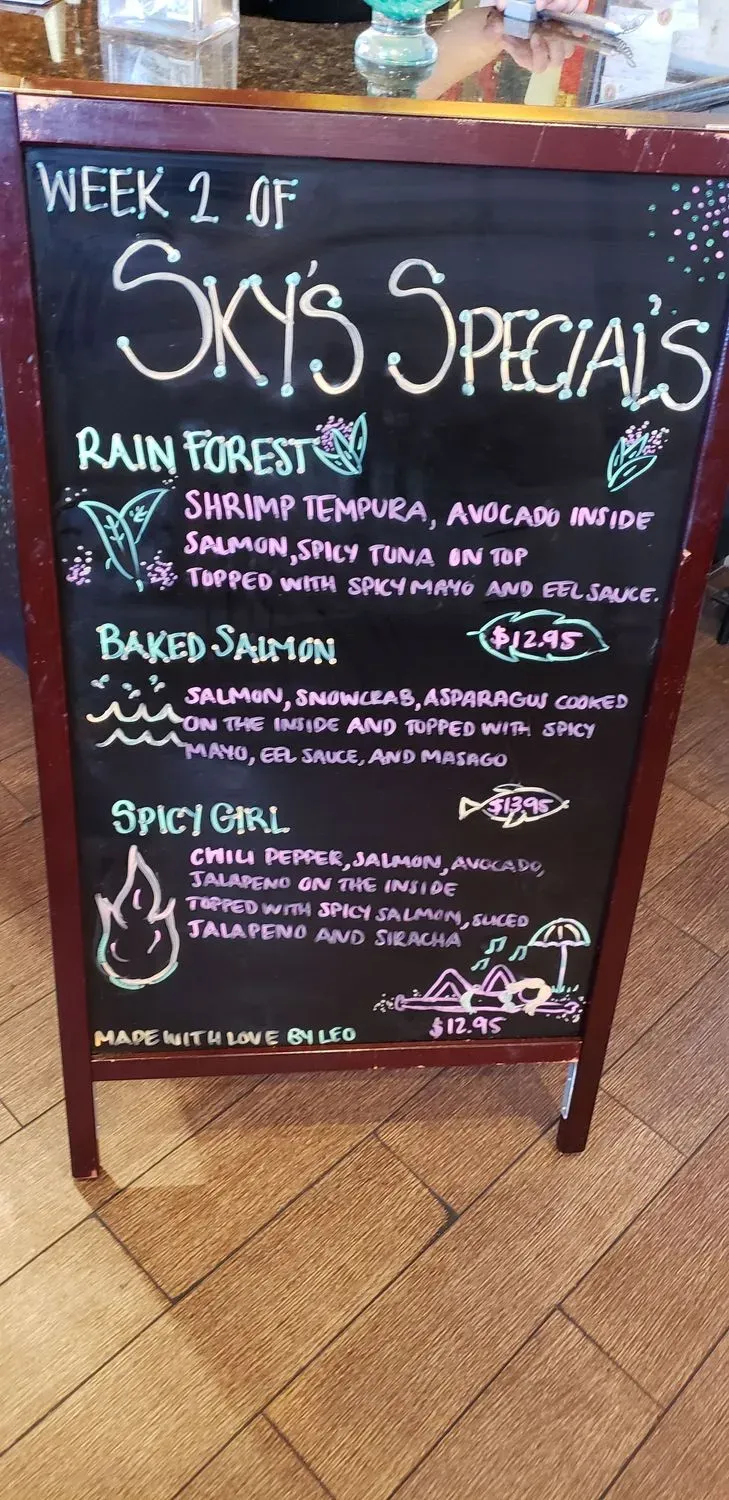 WEEK 2 OF
SKY'S SPECIAL'S
RAIN FOREST
SHRIMP TEMPURA, AVOCADO INSIDE
SALMON, SPICY TUNA ON TOP
TOPPED WITH SPICY MAYO AND EEL SAUCE.
BAKED SALMON
$12.95
SALMON, SNOWCRAB, ASPARAGUS COOKED
ON THE INSIDE AND TOPPED WITH SPICY
MAYO, EEL SAUCE, AND MASAGO
SPICY GIRL
$13.95
CHILI PEPPER, SALMON, AVOCADO,
JALAPENO ON THE INSIDE
TOPPED WITH SPICY SALMON, SLICED
JALAPENO AND SIRACHA
$12.95
MADE WITH LOVE BY LEO